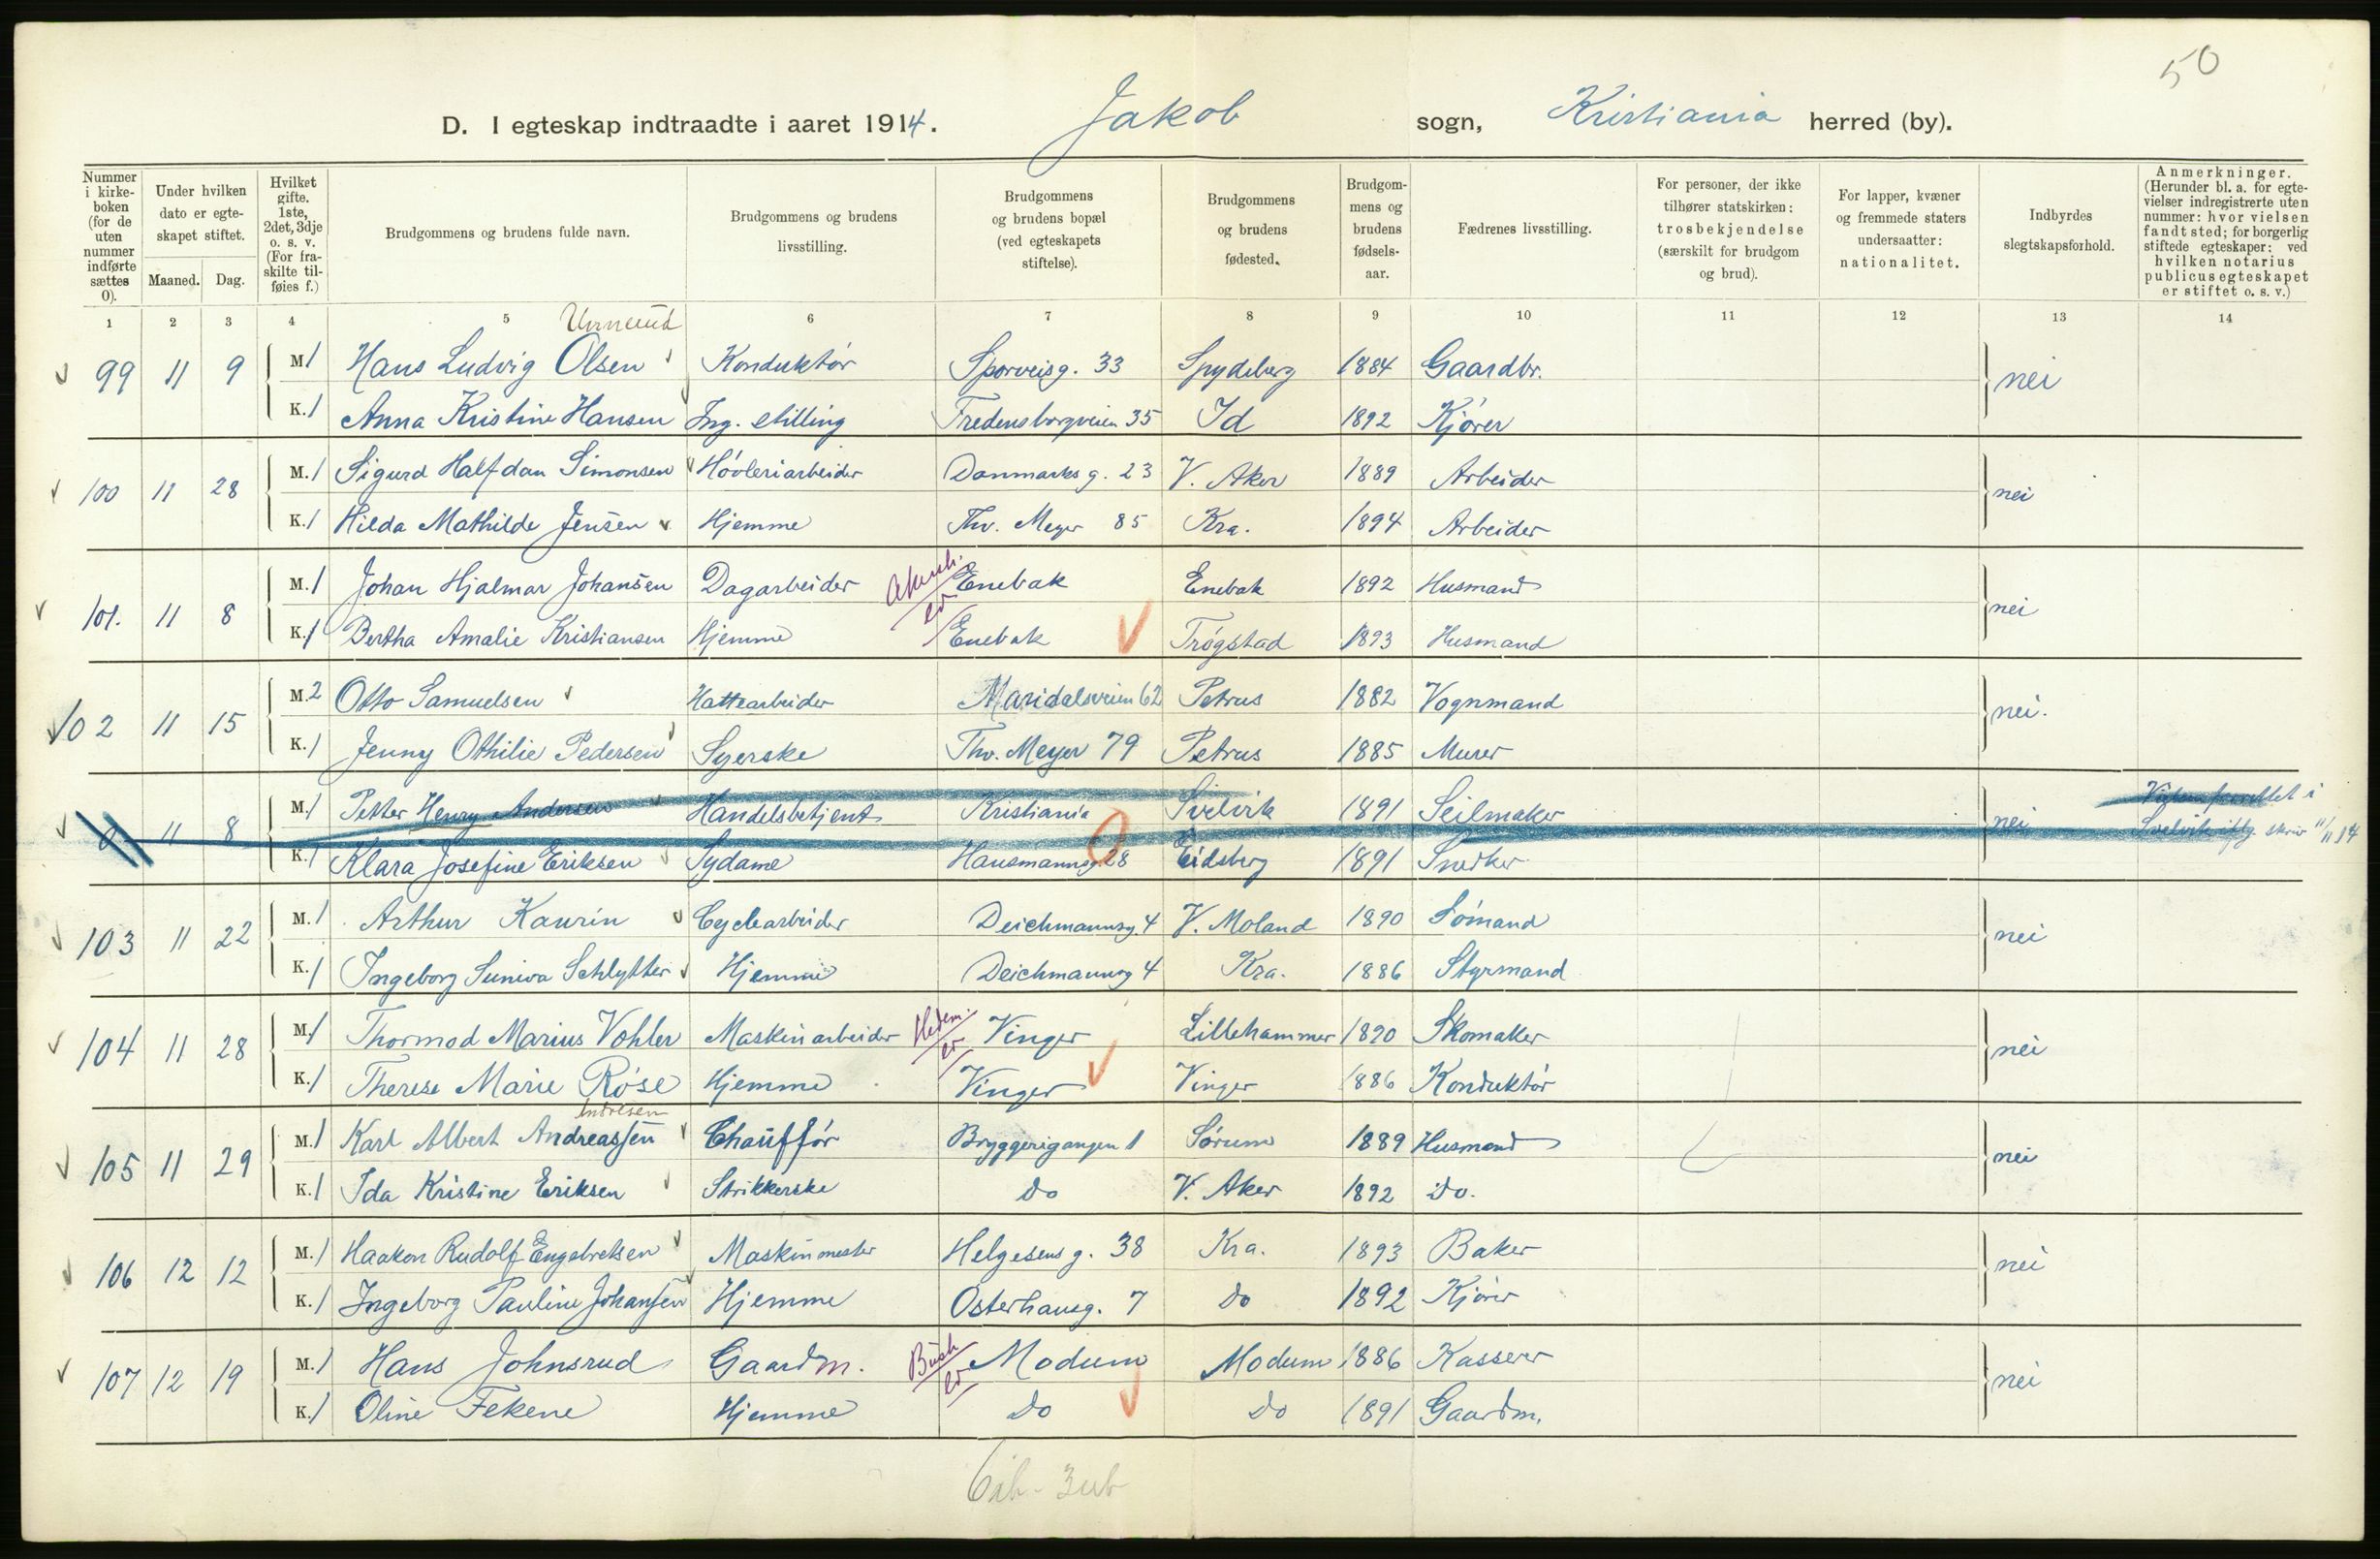 50
D. I egteskap indtraadte i aaret 1914. Jakob sogn, Kristiania herred (by).
Nummer i kirkeboken (for de uten nummer indførte sættes 0).
Under hvilken dato er egteskapet stiftet.
Maaned. Dag.
Hvilket gifte. 1ste, 2det, 3dje o. s. v. (For fraskilte tilføies f.)
Brudgommens og brudens fulde navn.
Brudgommens og brudens livsstilling.
Brudgommens og brudens bopæl (ved egteskapets stiftelse).
Brudgommens og brudens fødested.
Brudgommens og brudens fødselsaar.
Fædrenes livsstilling.
For personer, der ikke tilhører statskirken: trosbekjendelse (særskilt for brudgom og brud).
For lapper, kvæner og fremmede staters undersaatter: nationalitet.
Indbyrdes slegtskapsforhold.
Anmerkninger. (Herunder bl. a. for egtevielser indregistrerte uten nummer: hvor vielsen fandt sted; for borgerlig stiftede egteskaper: ved hvilken notarius publicus egteskapet er stiftet o. s. v.)
1 2 3 4 5 6 7 8 9 10 11 12 13 14
99 11 9 M. 1 Hans Ludvig Olsen Konduktór Sporveisg. 33 Spydeberg 1884 Gaardbr. nei
K. 1 Anna Kristine Hansen Ing. stilling Fredensborgveien 35 Id 1892 Kjórer
100 11 28 M. 1 Sigurd Halfdan Simonsen Hóvleriarbeider Danmarks g. 23 V. Aker 1889 Arbeider nei
K. 1 Hilda Mathilde Jensen Hjemme Thv. Meyer 85 Kra. 1894 Arbeider
101. 11 8 M. 1 Johan Hjalmar Johansen Dagarbeider Enebak Enebak 1892 Husmand nei
K. 1 Bertha Amalie Kristiansen Hjemme Enebak Trógstad 1893 Husmand
102 11 15 M. 2 Otto Samuelsen Hattearbeider Maridalsveien 62 Petrus 1882 Vognmand nei.
K. 1 Jenny Othilie Pedersen Syerske Thv. Meyer 79 Petrus 1885 Murer
0 11 8 M. 1 Petter Henry Andersen Handelsbetjent Kristiania Svelvik 1891 Seilmaker nei
Svelvik iflg. skriv 11/11 14
K. 1 Klara Josefine Eriksen Sydame Hausmannsg 28 Eidsberg 1891 Snedker
103 11 22 M. 1 Arthur Kaurin Cyclearbeider Deichmannsg. 4 V. Moland 1890 Sómand nei
K. 1 Ingeborg Suniva Schlytter Hjemme Deichmannsg 4 Kra. 1886 Styrmand
104 11 28 M. 1 Thormod Marius Vohler Maskinarbeider Hedem. Vinger Lillehammer 1890 Skomaker nei
K. 1 Therese Marie Róse Hjemme Vinger Vinger 1886 Konduktór
Andresen
105 11 29 M. 1 Karl Albert Andreassen Chauffór Bryggerigangen 1 Sórum 1889 Husmand nei
K. 1 Ida Kristine Eriksen Strikkerske Do V. Aker 1892 Do.
106 12 12 M. 1 Haakon Rudolf Engebretsen Maskinmester Helgesens g. 38 Kra. 1893 Baker nei
K. 1 Ingeborg Pauline Johansen Hjemme Osterhausg. 7 Do 1892 Kjórer
107 12 19 M. 1 Hans Johnsrud Gaardm. Busk Modum Modum 1886 Kasserer nei
K. 1 Oline Fekene Hjemme Do Do 1891 Gaardm.